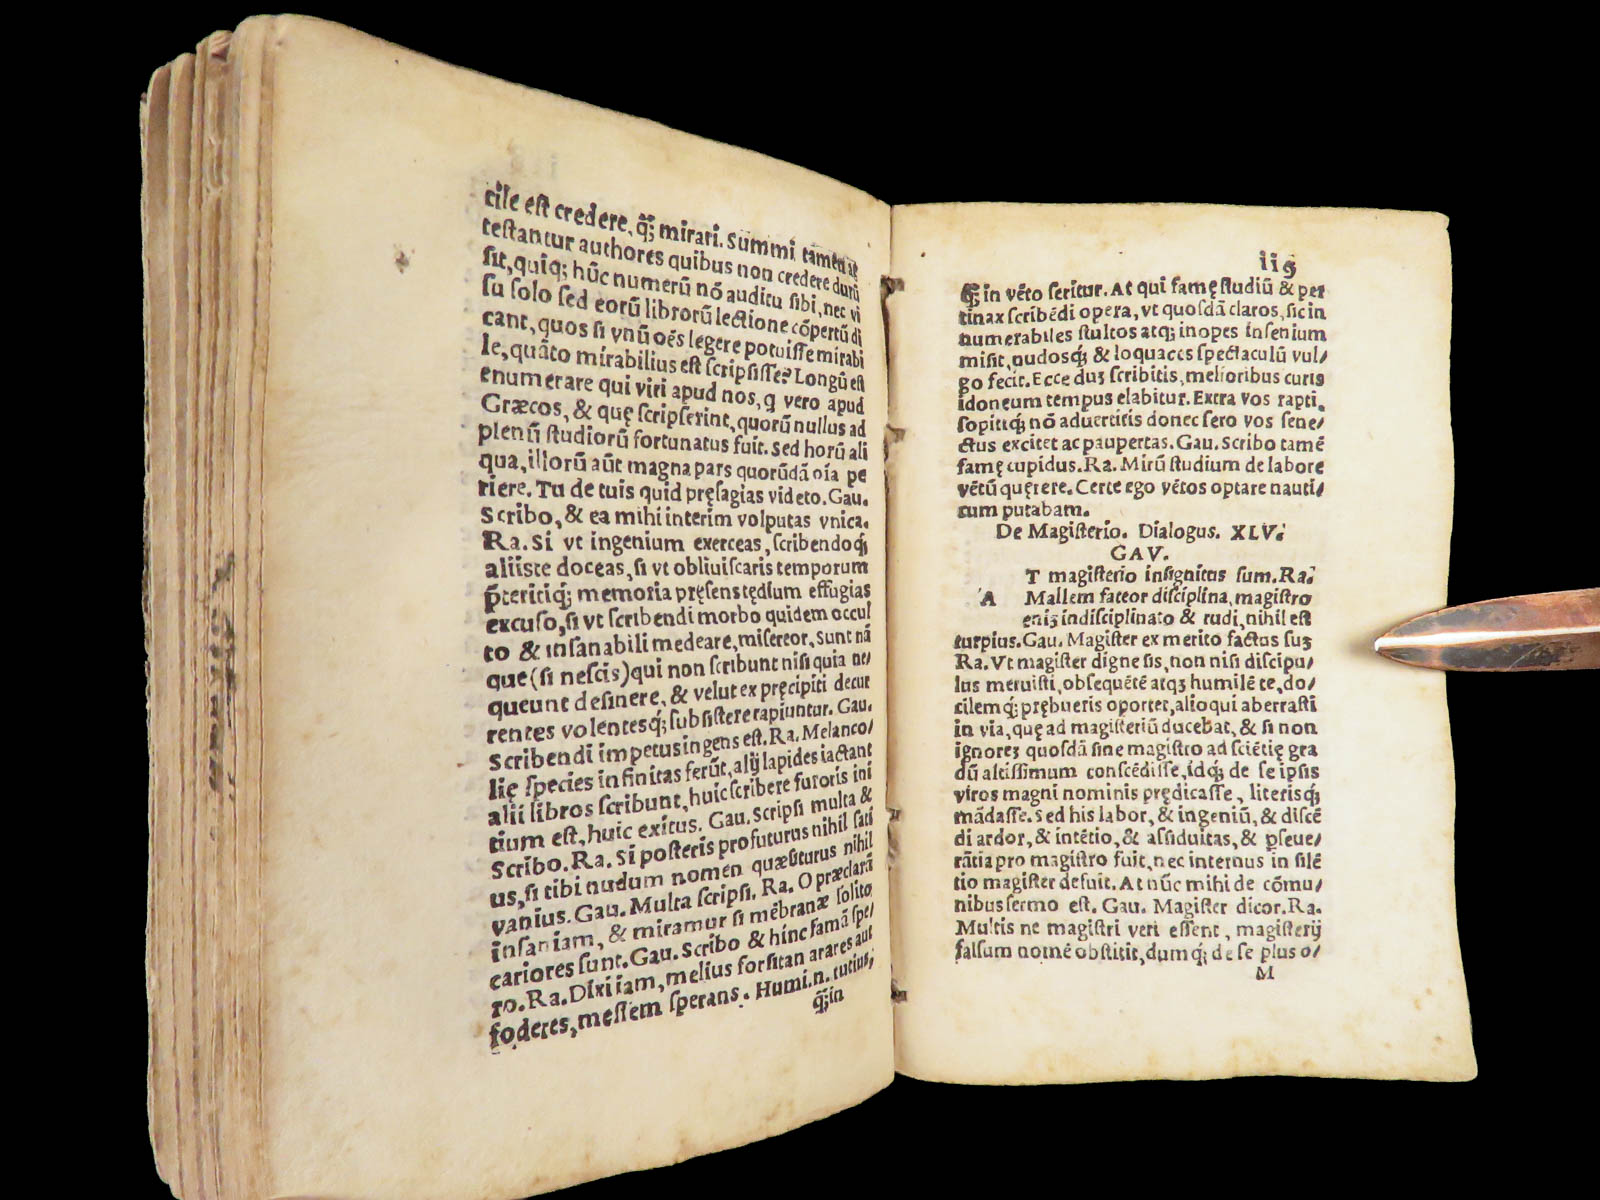 cile est credere, q̃; mirari. Summi tamen at
testantur authores quibus non credere durū
sit, quiq; hūc numerū nō auditu sibi, nec vi
su solo sed eorū librorū lectione cōpertū di
cant, quos si vnū oēs legere potuisse mirabi
le, quāto mirabilius est scripsisse? Longū est
enumerare qui viri apud nos, q vero apud
Græcos, & quę scripserint, quorū nullus ad
plenū studiorū fortunatus fuit. Sed horū ali
qua, illorū aūt magna pars quorūdā oīa pe
riere. Tu de tuis quid pręsagias videto. Gau.
Scribo, & ea mihi interim volputas vnica.
Ra. Si vt ingenium exerceas, scribendoq;
aliiste doceas, si vt obliuiscaris temporum
p̄teritiq; memoria pręsens tędium effugias
excuso, si vt scribendi morbo quidem occul
to & insanabili medeare, misereor. Sunt nā
que (si nescis) qui non scribunt nisi quia ne/
queunt desinere, & velut ex pręcipiti decur
rentes volentesq; subsistere rapiuntur. Gau.
Scribendi impetus ingens est. Ra. Melanco/
lię species infinitas ferūt, alij lapides iactant
alii libros scribunt, huic scribere furoris ini
tium est, huic exitus. Gau. Scripsi multa &
Scribo. Ra. Si posteris profuturus nihil sati
us, si tibi nudum nomen quæsiturus nihil
vanius. Gau. Multa scripsi. Ra. O præclarā
insaniam, & miramur si mēbranæ solito
cariores sunt. Gau. Scribo & hinc famā spe/
ro. Ra. Dixi iam, melius forsitan arares aut
foderes, messem sperans. Humi. n. tutius,
q̃; in
119
q̃; in vēto seritur. At qui famę studiū & per
tinax scribēdi opera, vt quosdā claros, sic in
numerabiles stultos atq; inopes in senium
misit, nudosq; & loquaces spectaculū vul/
go fecit. Ecce duʒ scribitis, melioribus curis
idoneum tempus elabitur. Extra vos rapti,
sopitiq; nō aduertitis donec sero vos sene/
ctus excitet ac paupertas. Gau. Scribo tamē
famę cupidus. Ra. Mirū studium de labore
vētū quęrere. Certe ego vētos optare nauti/
cum putabam.
De Magisterio. Dialogus. XLV.
GAV.
T magisterio insignitus sum. Ra.
A Mallem fateor disciplina, magistro
eniʒ indisciplinato & rudi, nihil est
turpius. Gau. Magister ex merito factus suʒ
Ra. Vt magister digne sis, non nisi discipu/
lus meruisti, obsequētē atqʒ humilē te, do/
cilemq; prębueris oportet, alioqui aberrasti
in via, quę ad magisteriū ducebat, & si non
ignoreʒ quosdā sine magistro ad sciētię gra
dū altissimum conscēdisse, idq; de se ipsis
viros magni nominis prędicasse, literisq;
mādasse. Sed his labor, & ingeniū, & discē
di ardor, & intētio, & assiduitas, & pseue/
rātia pro magistro fuit, nec internus in silē
tio magister defuit. At nūc mihi de cōmu/
nibus sermo est. Gau. Magister dicor. Ra.
Multis ne magistri veri essent, magisterij
falsum nomē obstitit, dumq; de se plus o/
M